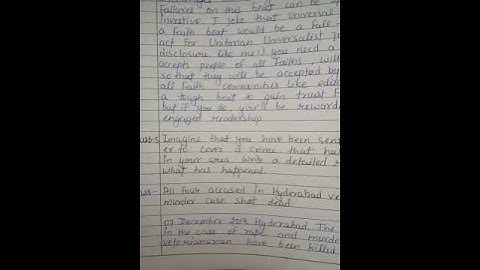 failures on this beat can be
investive I joke that universal
a faith beat would be a full
act for Unitarian Universalist
disclosure like me!) you need a
accepts people of all faiths, with
so that they will be accepted by
all faith communities like
a tough beat to gain trust
but if you do, you'll be
engaged readership
Imagine that you have been
er to cover a crime that
in your area write a detailed
what has happened.
All four accused in Hyderabad
murder case shot dead
07 December 2019 Hyderabad The
in the case of rape and
veterianarian have been killed